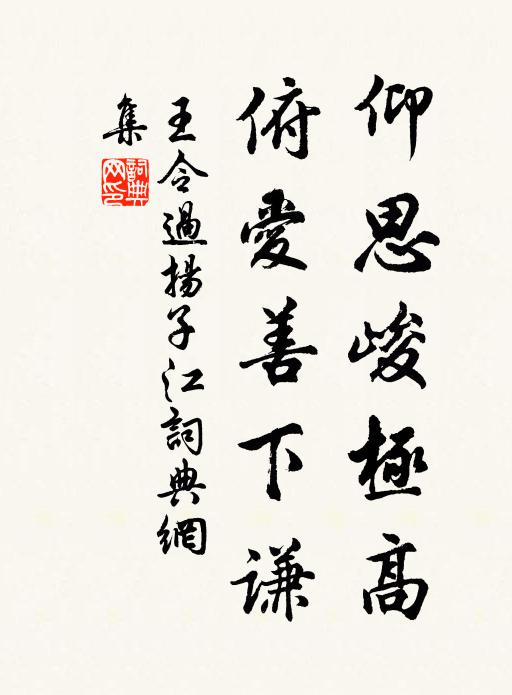 仰思峻極高
俯愛善下謙
王令過揚子江詞典網
集
詞典網印